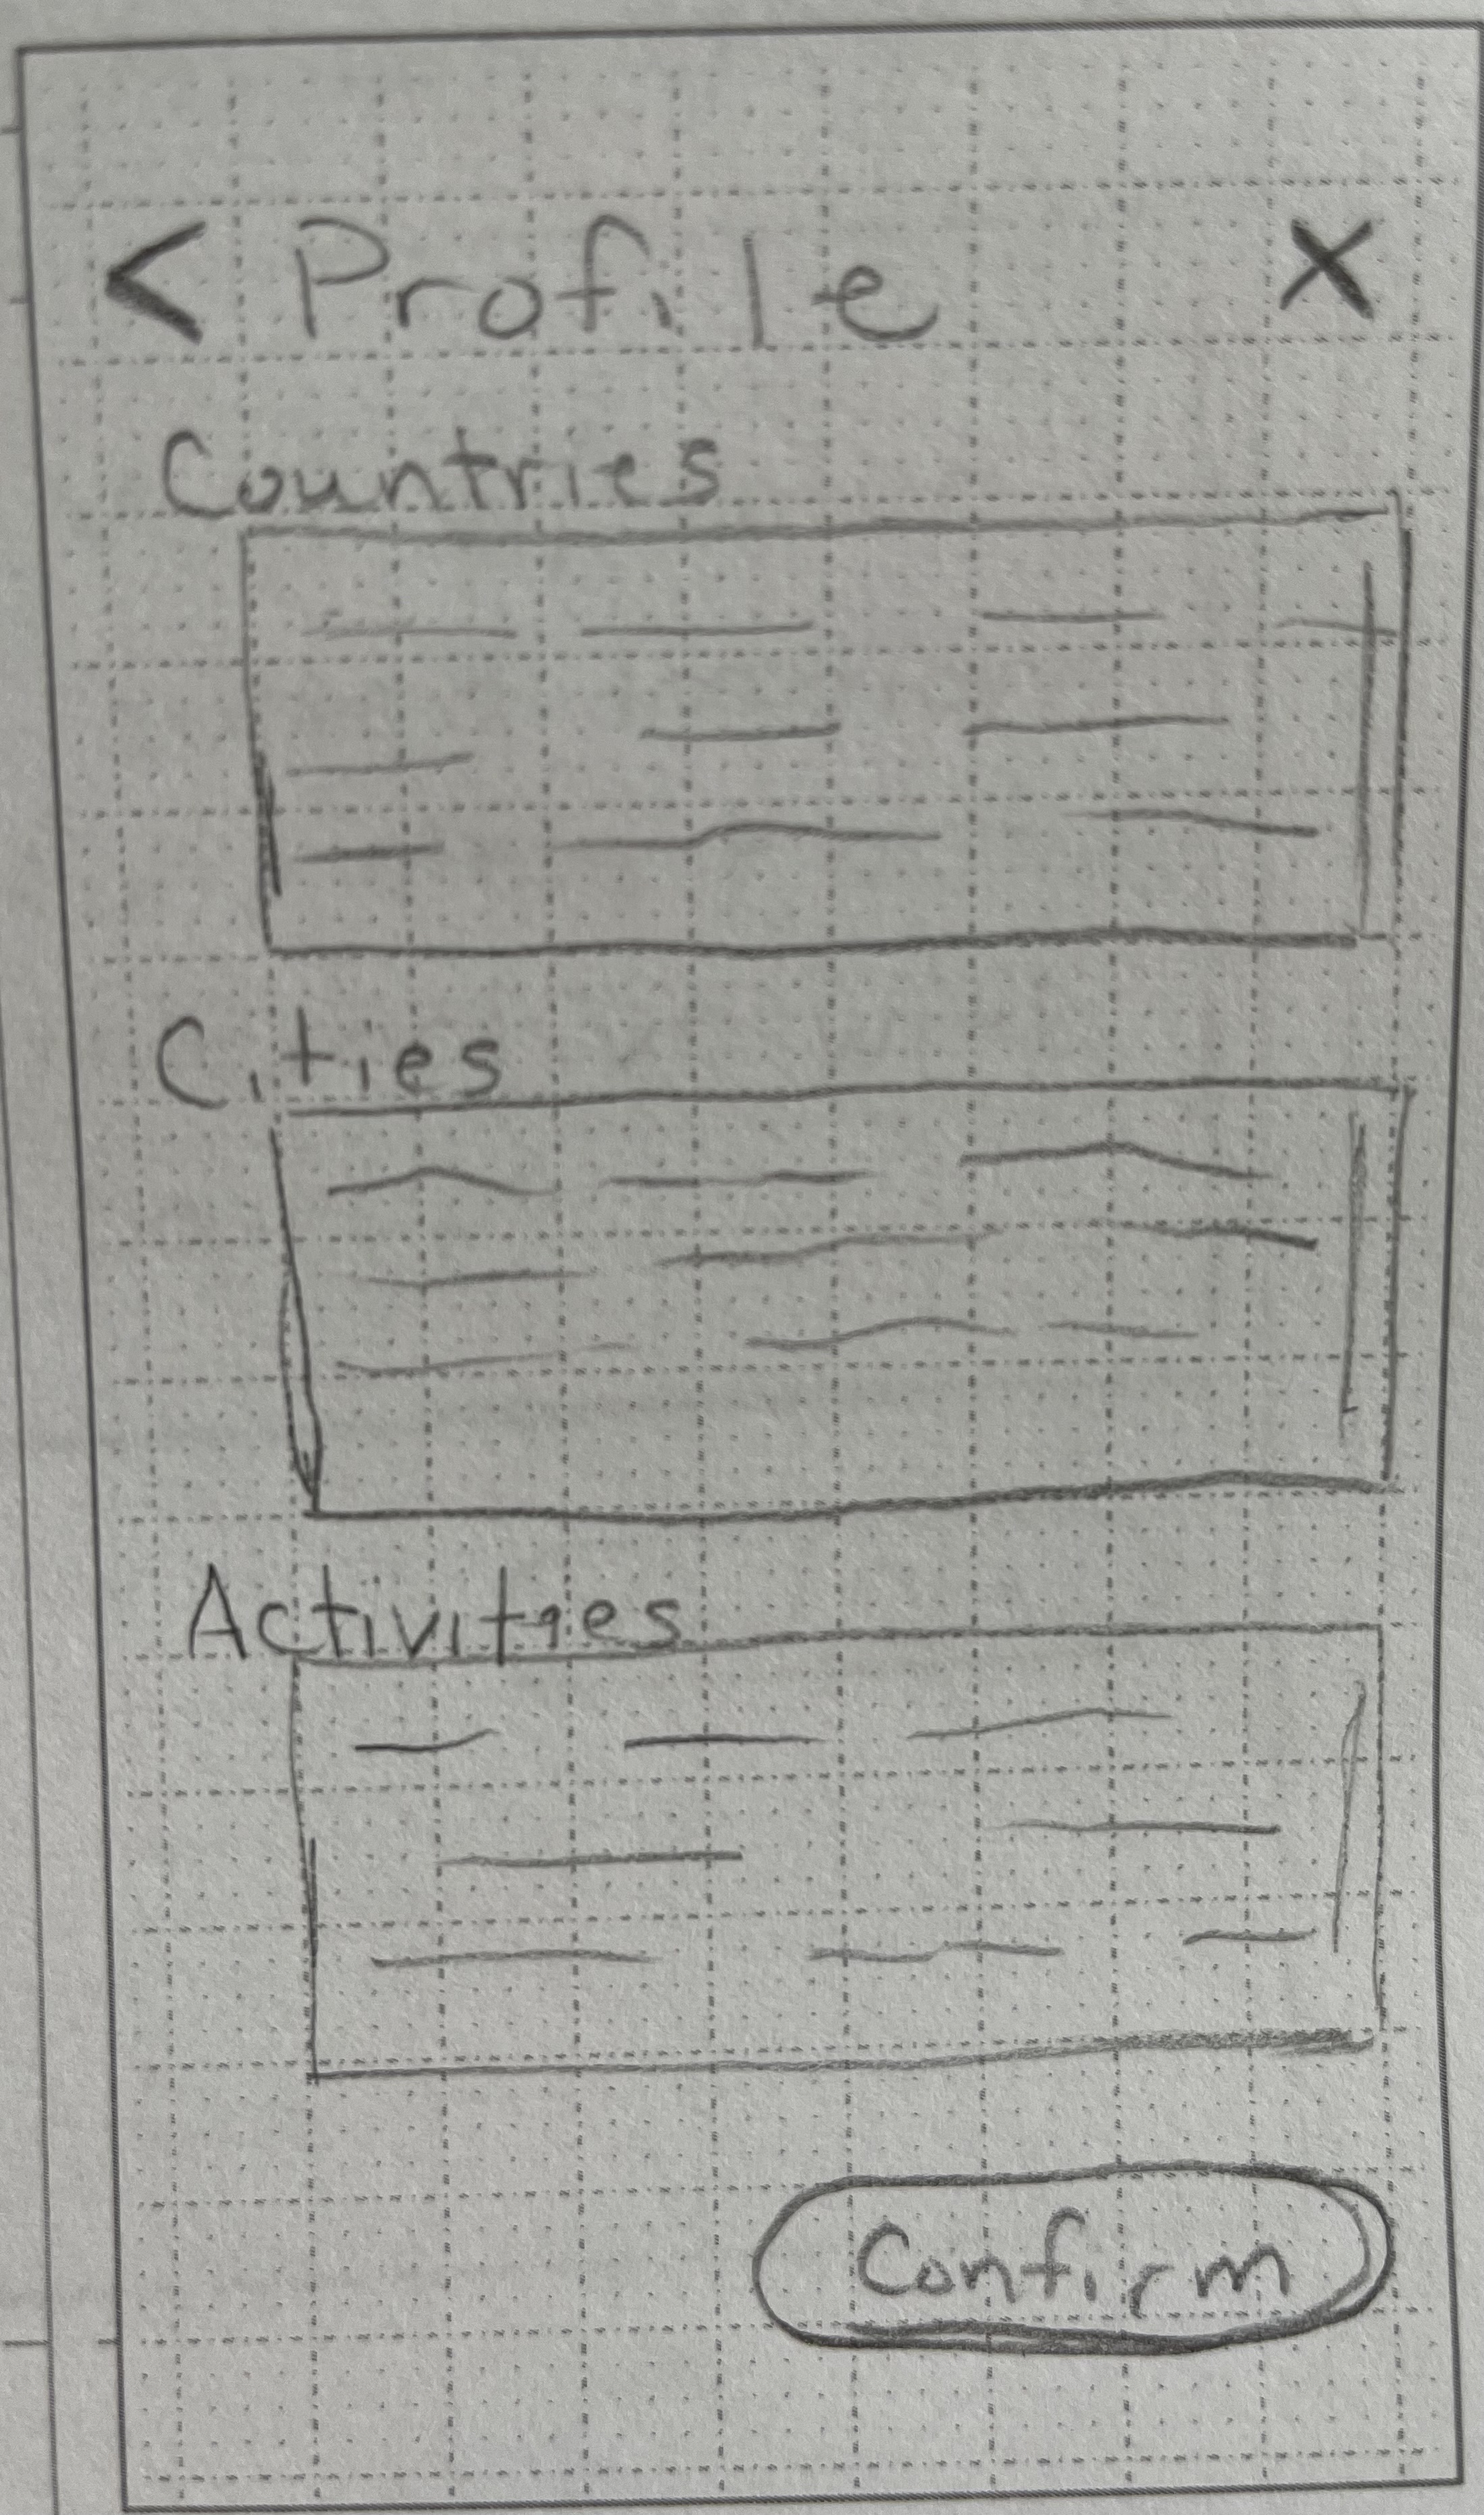 < Profile X
Countries
Cities
Activities
Confirm